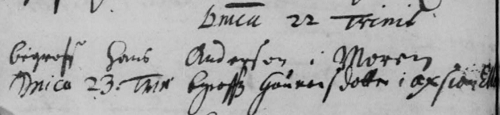 Dmca 22 Trinit
begrofs hans Andersen i Moren
Dnica 23. Trin bgrofs Gauversdotter i